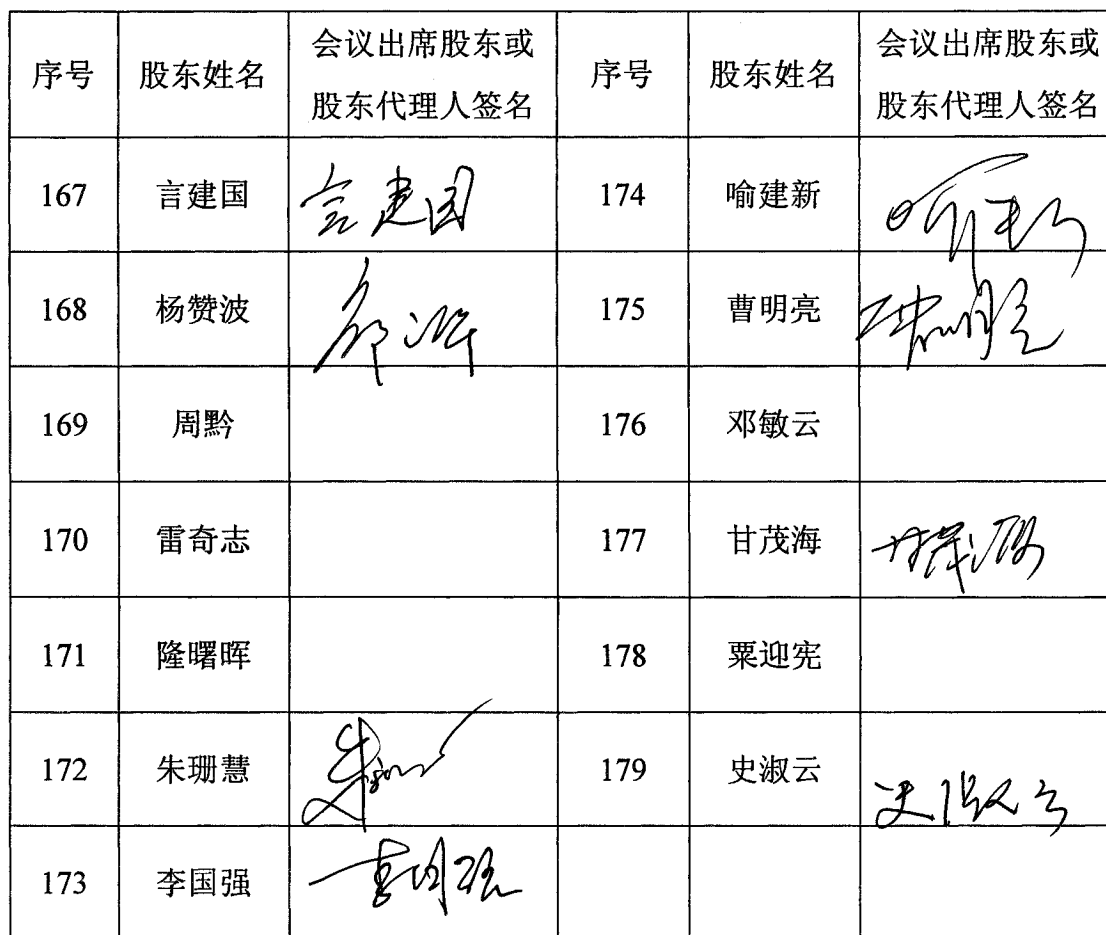 序号 股东姓名 会议出席股东或 序号 股东姓名 会议出席股东或
股东代理人签名 股东代理人签名
167 言建国 言建国 174 喻建新
168 杨赞波 175 曹明亮
169 周黔 176 邓敏云
170 雷奇志 177 甘茂海 甘茂海
171 隆曙晖 178 粟迎宪
172 朱珊慧 179 史淑云 史淑云
173 李国强 李国强